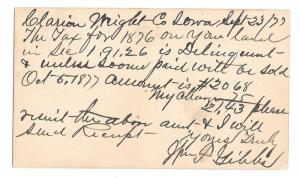 Clarion Wright Co Iowa Sept 23/77
The Tax for 1876 on your land
in Sec 1,91,26 is Delinquent
& unless soone paid will be sold
Oct 6, 1877 amount is $20 68
My charge 75
21,43 please
remit the above amt, & I will
send Receipt Yours Truly
Gibbs